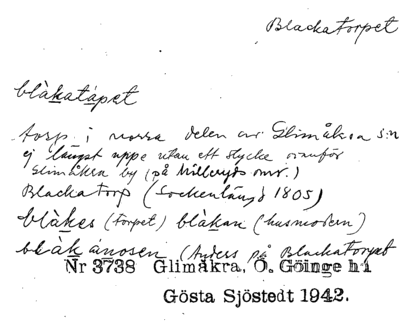 Blackatorpet
blàkatápet
torp i norra delen av Glimåkra s:n
ej längst uppe utan ett stycke ovanför
Glimåkra by (på Milleryds omr.)
Blackatorp (Sockenlängd 1805)
blàkes (torpet) blàkan (husmodern)
blàkánosen (Anders på Blackatorpet
Nr 3738 Glimåkra, Ö. Göinge hd
Gösta Sjöstedt 1942.